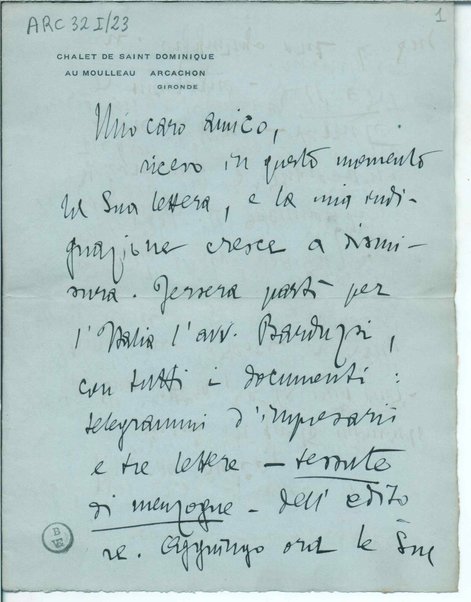 ARC 32 I/23
1
CHALET DE SAINT DOMINIQUE
AU MOULLEAU ARCACHON
GIRONDE
Mio caro amico,
ricevo in questo momento
la Sua lettera, e la mia indi-
gnazione cresce a dismi-
sura. Iersera partì per
l'Italia l'avv. Barduzzi,
con tutti i documenti:
telegrammi d'impresarii
e tre lettere – tessute
di menzogne – dell'edito
re. Aggiungo ora le Sue